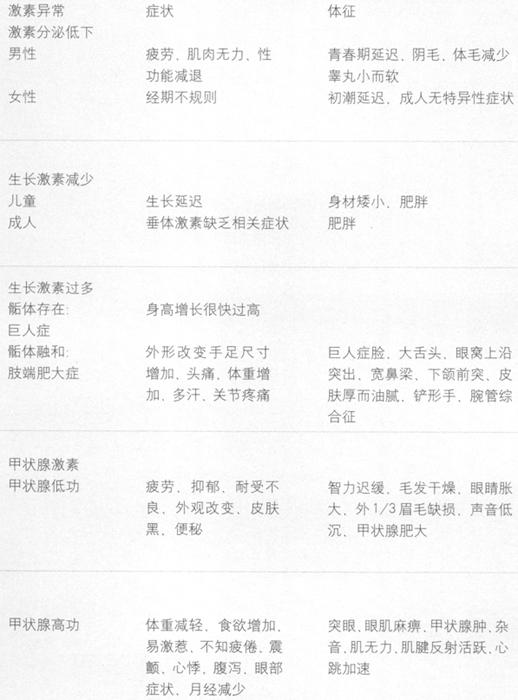 激素异常 症状 体征
激素分泌低下
男性 疲劳、肌肉无力、性 青春期延迟、阴毛、体毛减少
功能减退 睾丸小而软
女性 经期不规则 初潮延迟、成人无特异性症状
生长激素减少
儿童 生长延迟 身材矮小、肥胖
成人 垂体激素缺乏相关症状 肥胖
生长激素过多
骺体存在: 身高增长很快过高
巨人症
骺体融和: 外形改变手足尺寸 巨人症脸、大舌头、眼窝上沿
肢端肥大症 增加、头痛、体重增 突出、宽鼻梁、下颌前突、皮
加、多汗、关节疼痛 肤厚而油腻、铲形手、腕管综
合征
甲状腺激素
甲状腺低功 疲劳、抑郁、耐受不 智力迟缓、毛发干燥、眼睛胀
良、外观改变、皮肤 大、外1/3眉毛缺损、声音低
黑、便秘 沉、甲状腺肥大
甲状腺高功 体重减轻、食欲增加、 突眼、眼肌麻痹、甲状腺肿、杂
易激惹、不知疲倦、震 音、肌无力、肌腱反射活跃、心
颤、心悸、腹泻、眼部 跳加速
症状、月经减少